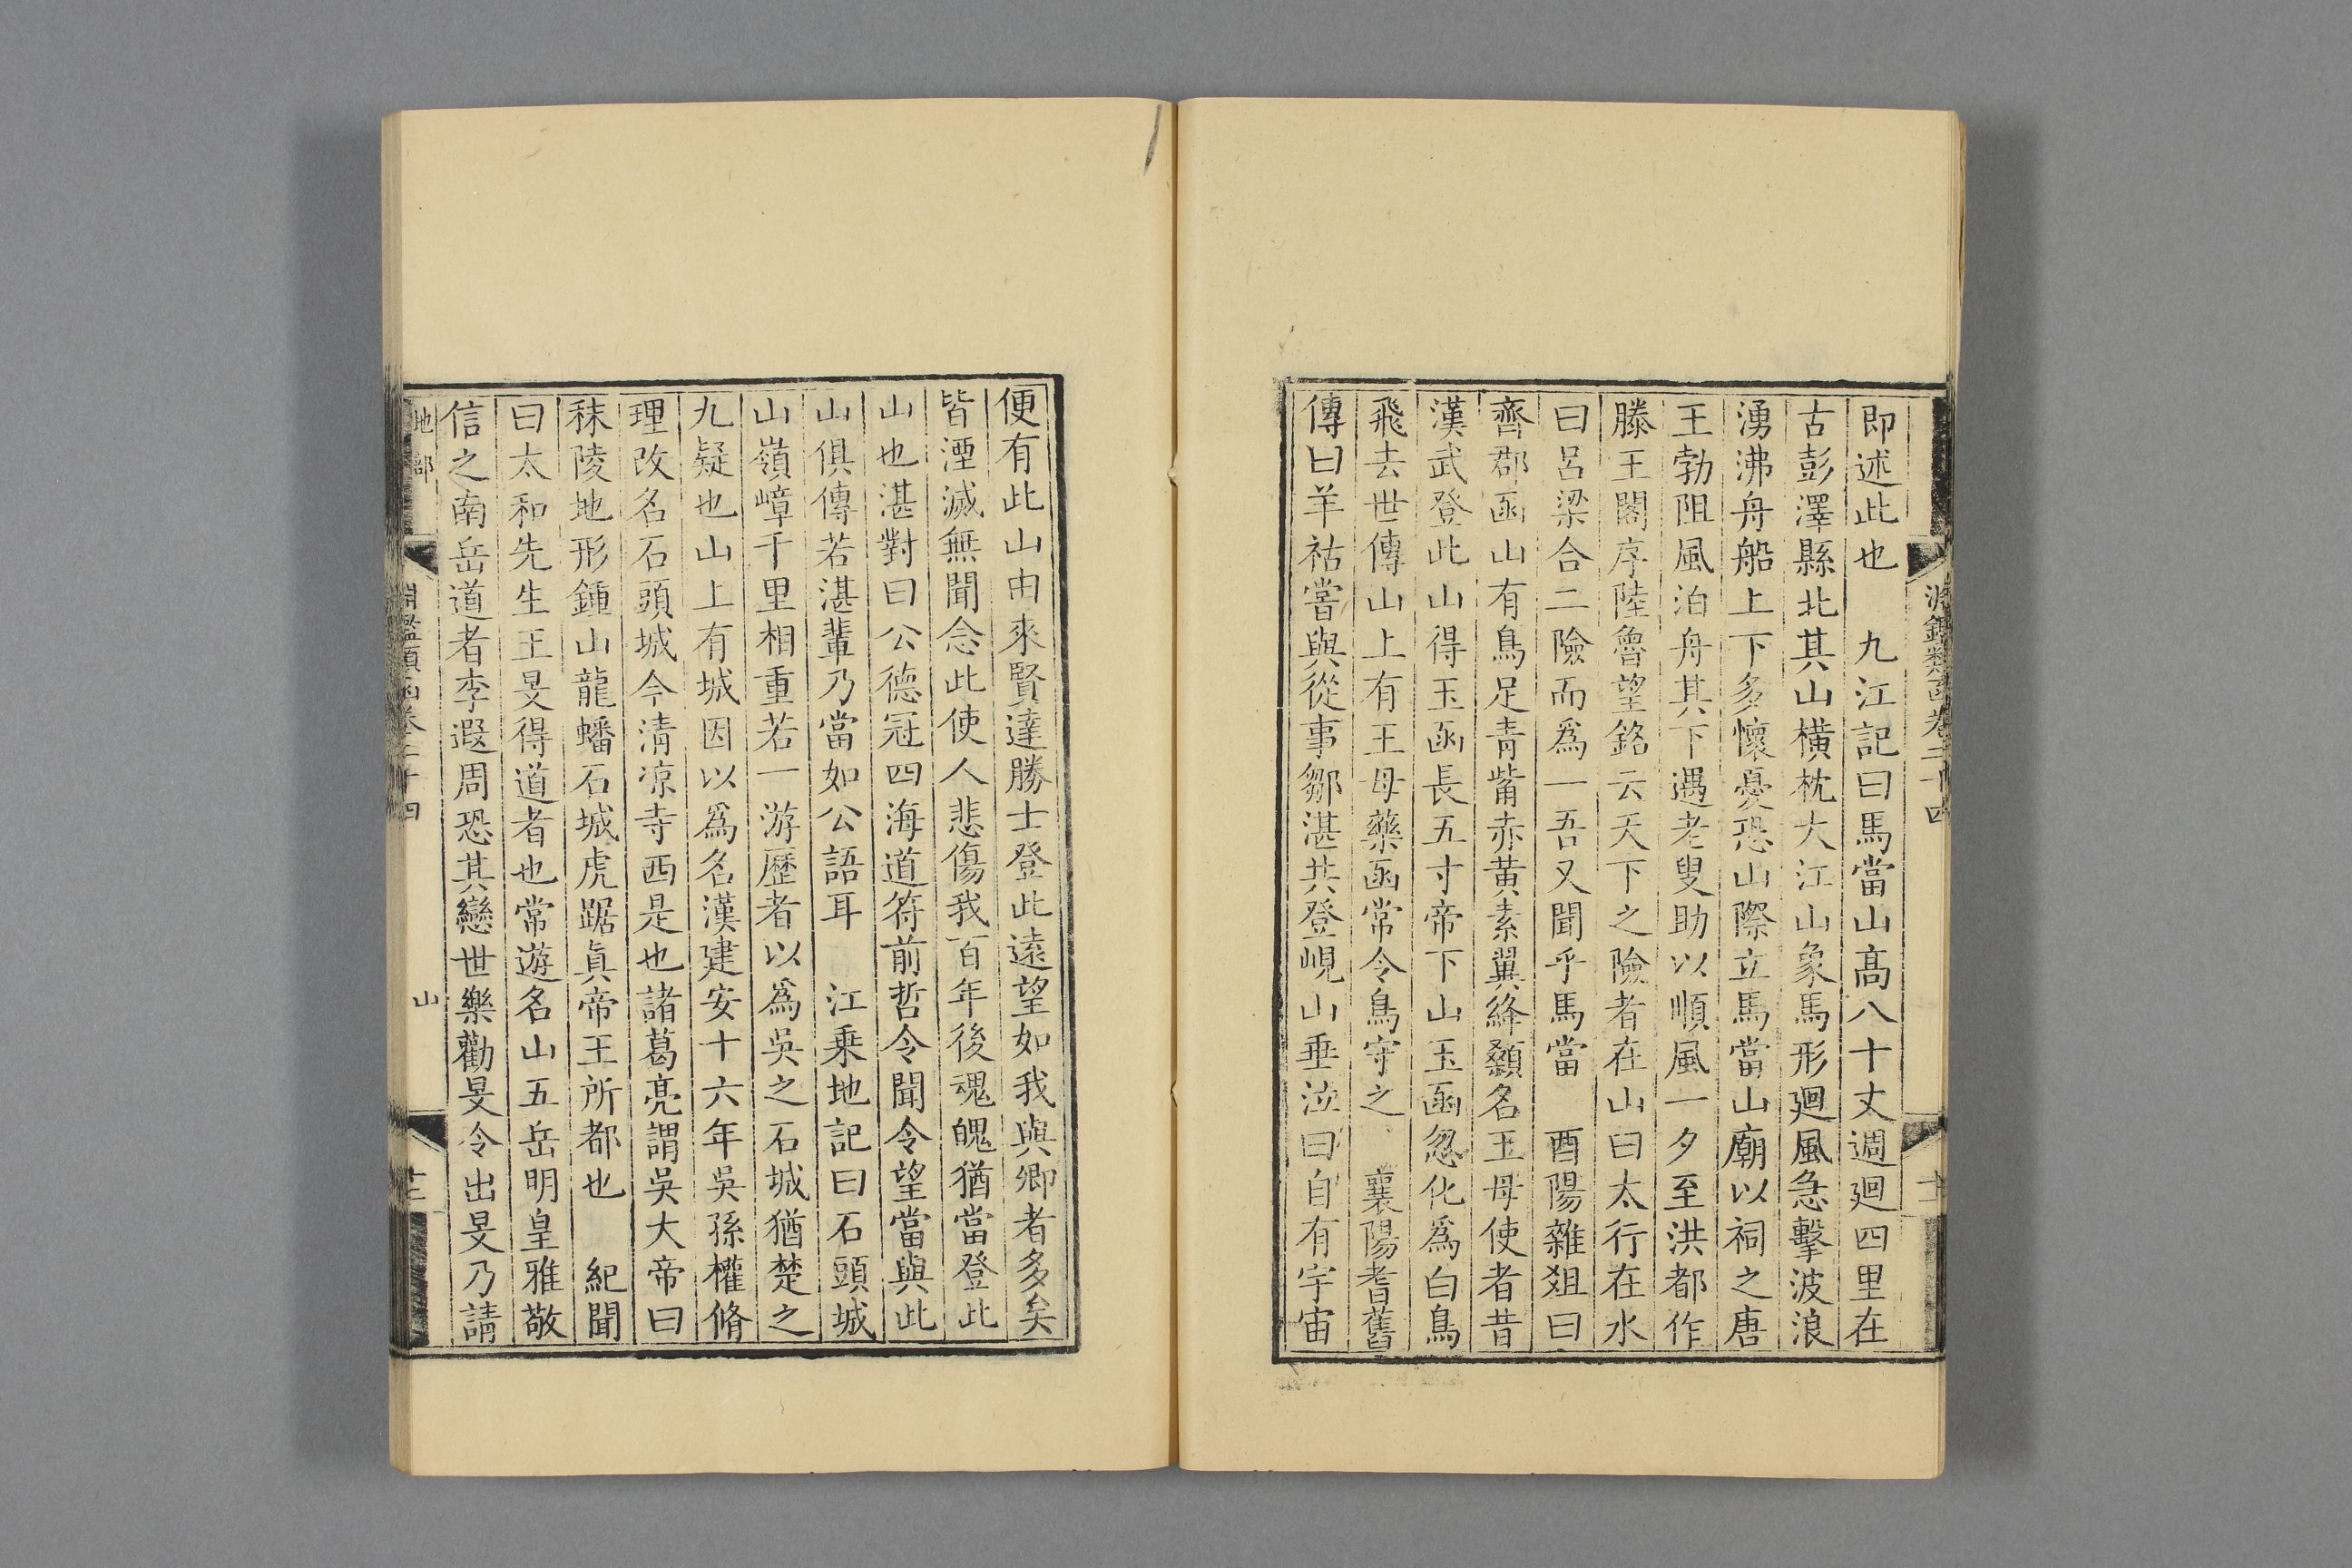 淵鑑類函卷二十四
十二
即述此也　九江記曰馬當山高八十丈週廻四里在
古彭澤縣北其山橫枕大江山象馬形廻風急擊波浪
湧沸舟船上下多懷憂恐山際立馬當山廟以祠之唐
王勃阻風泊舟其下遇老叟助以順風一夕至洪都作
滕王閣序陸魯望銘云天下之險者在山曰太行在水
曰呂梁合二險而爲一吾又聞乎馬當　酉陽雜俎曰
齊郡函山有鳥足青觜赤黃素翼絳顙名王母使者昔
漢武登此山得玉函長五寸帝下山玉函忽化爲白鳥
飛去世傳山上有王母藥函常令鳥守之　襄陽耆舊
傳曰羊祜嘗與從事鄒湛共登峴山垂泣曰自有宇宙
便有此山由來賢達勝士登此遠望如我與卿者多矣
皆湮滅無聞念此使人悲傷我百年後魂魄猶當登此
山也湛對曰公德冠四海道符前哲令聞令望當與此
山俱傳若湛輩乃當如公語耳　江乘地記曰石頭城
山嶺嶂千里相重若一游歷者以爲吳之石城猶楚之
九疑也山上有城因以爲名漢建安十六年吳孫權脩
理改名石頭城今清凉寺西是也諸葛亮謂吳大帝曰
秣陵地形鍾山龍蟠石城虎踞真帝王所都也　紀聞
曰太和先生王旻得道者也常遊名山五岳明皇雅敬
信之南岳道者李遐周恐其戀世樂勸旻令出旻乃請
地部
淵鑑類函卷二十四
山